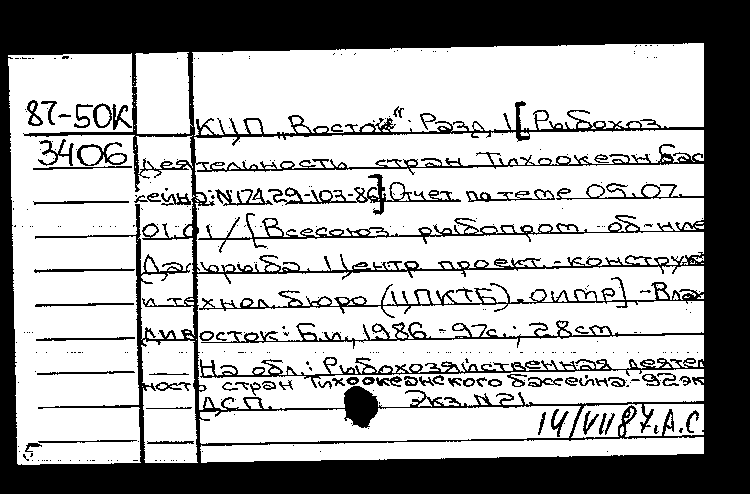 87-50К
3406
КЦП „Восток“: Разд. 1 [Рыбохоз.
деятельность стран Тихоокеан. бас
сейна: N174.29-103-86] Отчет по теме 09.07.
01.01 / [Всесоюз. рыбопром. об-ние
Дальрыба. Центр. проект.-конструк
и технол. бюро (ЦПКТБ). ОИТР]. -Вла
дивосток: Б.и., 1986. -97с.; 28см.
На обл.: Рыбохозяйственная деятел
ность стран Тихоокеанского бассейна.-92эк
ДСП. Экз. N21.
14/VII 87. А.С.
5